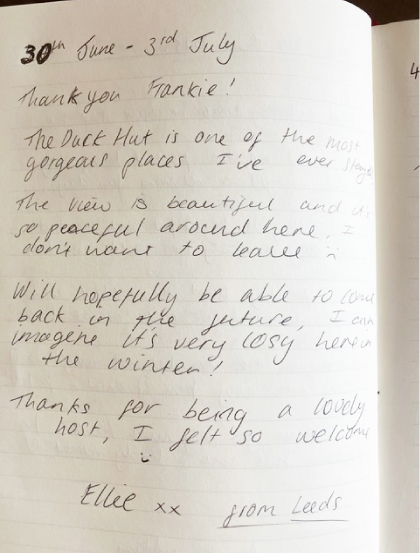 30th June - 3rd July
Thank you Frankie!
The Duck Hut is one of the most
gorgeous places I've ever stayed
The view is beautiful and it's
so peaceful around here, I
don't want to leave :(
Will hopefully be able to come
back in the future, I can
imagine it's very cosy here in
the winter!
Thanks for being a lovely
host, I felt so welcome
:)
Ellie xx from Leeds
4